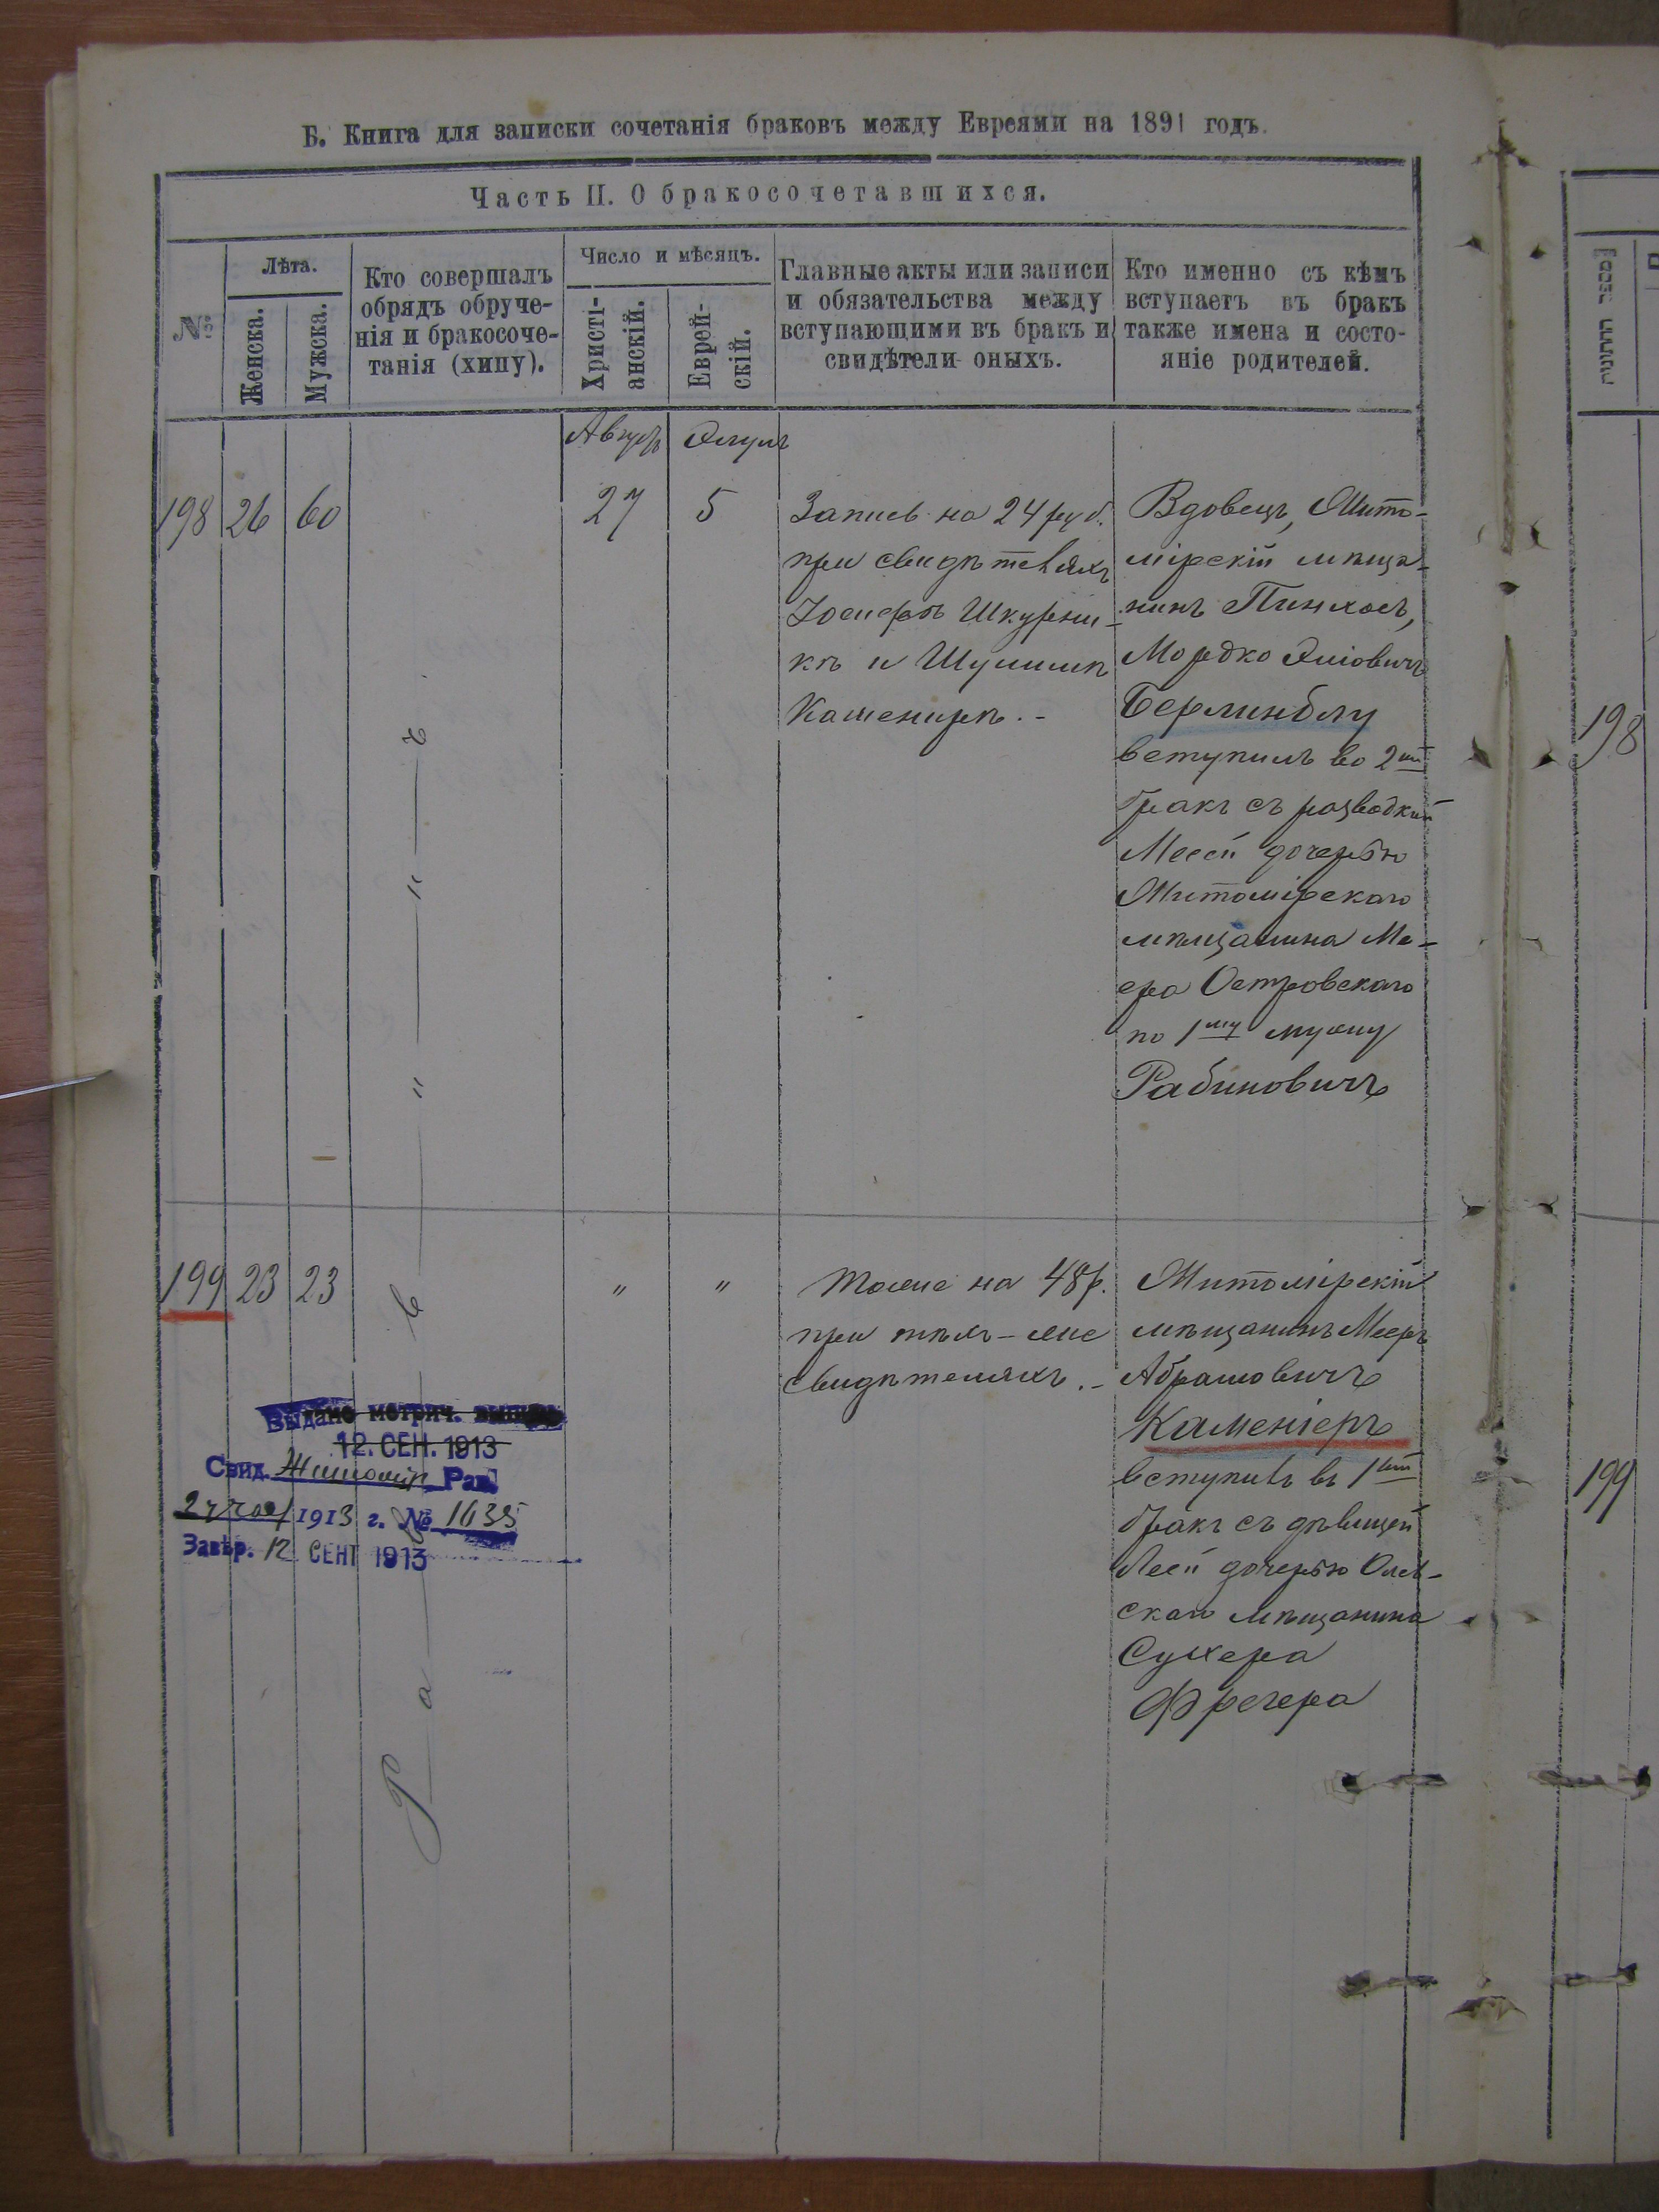 Б. Книга для записки сочетанія браковъ между Евреями на 1891 годъ.
Часть II. О бракосочетавшихся.
№
Лѣта.
Женска.
Мужска.
Кто совершалъ
обрядъ обруче-
нія и бракосоче-
танія (хипу).
Число и мѣсяцъ.
Христі-
анскій.
Еврей-
скій.
Главные акты или записи
и обязательства между
вступающими въ бракъ и
свидѣтели оныхъ.
Кто именно съ кѣмъ
вступаетъ въ бракъ
также имена и состо-
яніе родителей.
Августъ Элулъ
198 26 60
27 5
Запись на 24 руб.
при свидѣтеляхъ
Іосифѣ Шкурни-
кѣ и Шулимѣ
Каменирѣ.-
Вдовецъ, Жито-
мірскій мѣща-
нинъ Пинхосъ,
Мордко Эліовичъ
Берлинблу
вступилъ во 2ый
бракъ съ разводкой
дочерью
Житомірскаго
мѣщанина Ме-
ера Островскаго
по 1му мужу
Рабиновичъ
199 23 23
" "
Тоже на 48 р.
при тѣхъ-же
свидѣтеляхъ.-
Житомірскій
мѣщанинъ Мееръ
Абрамовичъ
Каменіеръ
вступилъ въ 1ый
бракъ съ дѣвицей
Леей дочерью Олев-
скаго мѣщанина
Сухера
Фрегера
Р а в в и н ъ
Выдано метрич. выпись
12. СЕН. 1913
Свид. Житомір. Рав.
1913 г. № 1635
Завѣр. 12 СЕНТ 1913
198
199